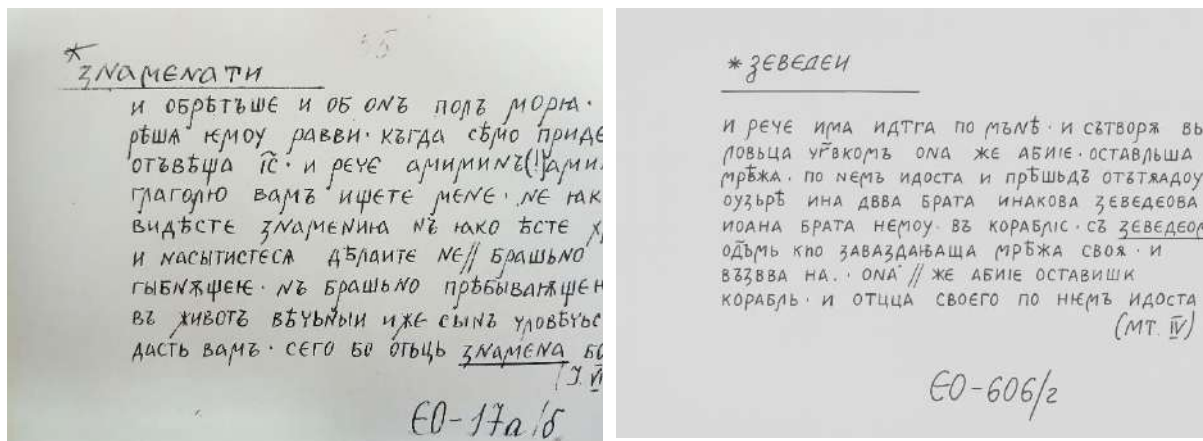 35
*знаменати
и обрѣтъше и об онъ полъ морꙗ ·
рѣшѧ ѥмоу равви · къгда сѣмо приде
отъвѣща і҃с · и рече амиминъ(!)ами
глаголю вамъ ищете мене · не ꙗк
видѣсте знамениꙗ нъ ꙗко ѣсте х
и насытистесѧ дѣлаите не// брашьно
гыблѭщеѥ · нъ брашьно прѣбываѭщеѥ
въ животъ вѣчьныи иже сынъ чловѣчьс
дасть вамъ · сего бо отьць знамена бо
(J. VI
ЄО-17а/б
*зеведеи
и рече има идтга по мънѣ · и сътворѫ вы
ловьца чг҃вкомъ она же абиѥ · оставльша
мрѣжа · по немъ идоста и прѣшьдъ отътѫдоу
оузьрѣ ина двва брата инакова зеведеова
иоана брата немоу · въ кораблІс · съ зеведеом
од҃ьмь кпо завазданьаща мрѣжа своѫ · и
възвва на. · она // же абиѥ оставишк
корабль · и отцца своего по нѥмъ идоста
(мт. IV)
ЄО-60б/г